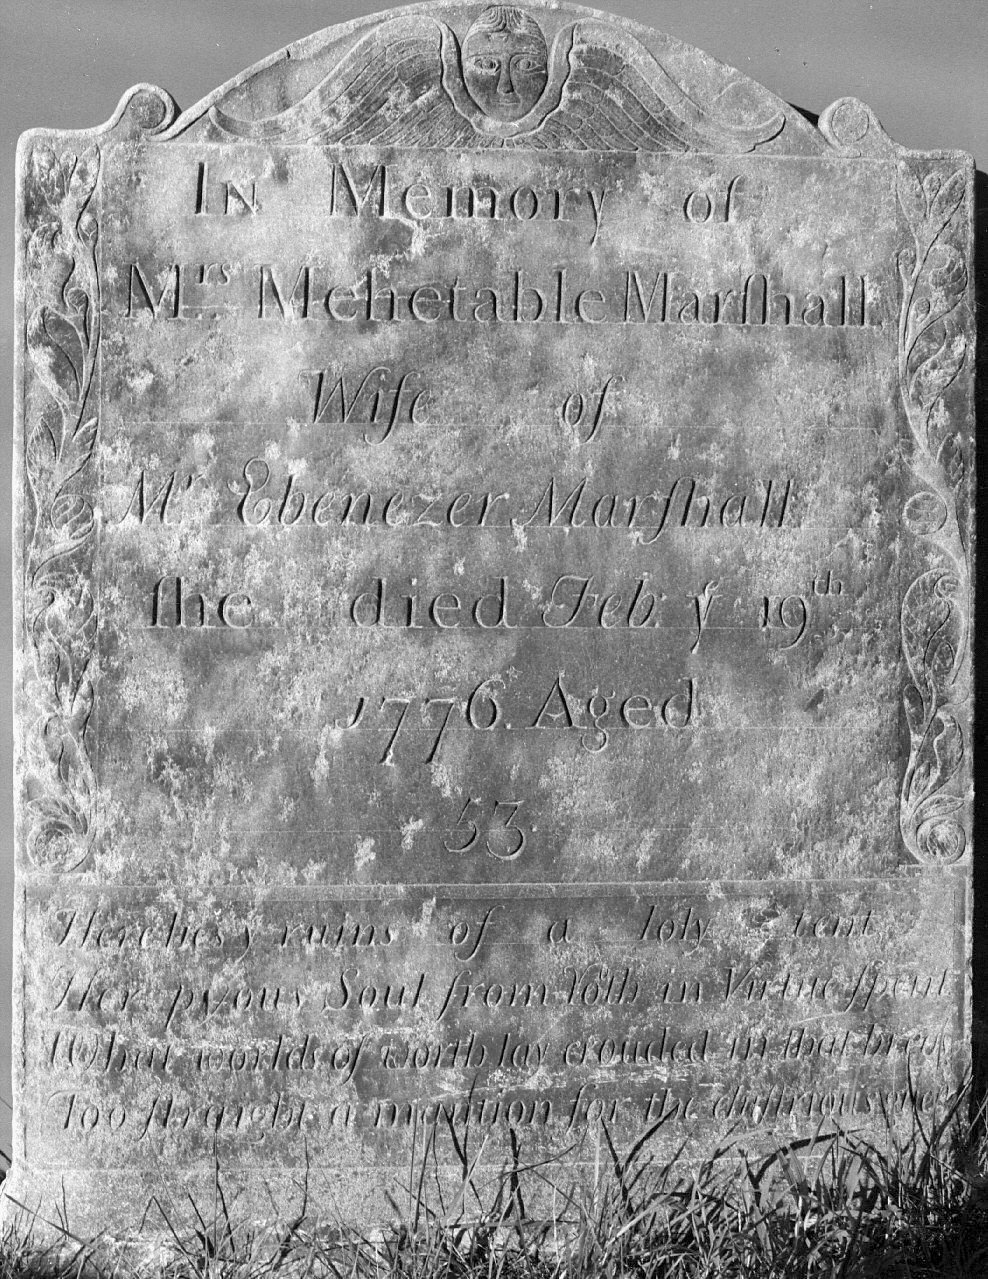 In Memory of
Mrs. Mehetable Marſhall
Wife of
Mr. Ebenezer Marſhall
ſhe died Feb. ye 19th
1776. Aged
53
Here lies ye ruins of a loly tent
Her pyous Soul from Yoth in Virtue ſpent
What worlds of worth lay crouded in that breſt
Too ſtraight a manſion for the